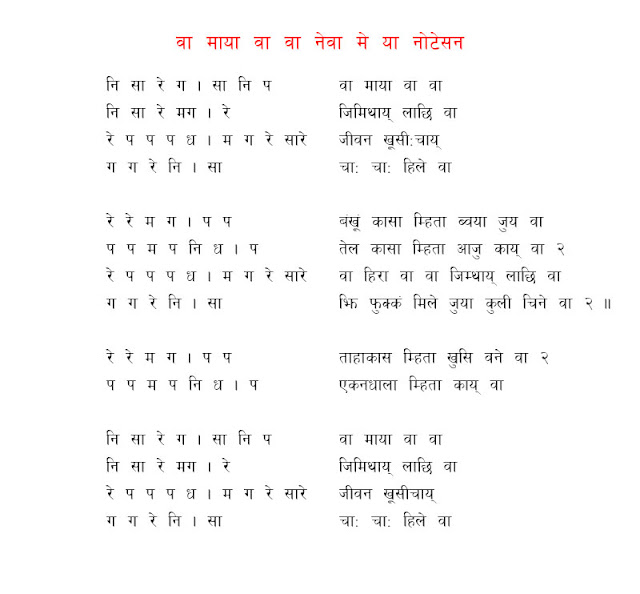 वा माया वा वा नेवा मे या नोटेसन
नि सा रे ग । सा नि प वा माया वा वा
नि सा रे मग । रे जिमिथाय् लाछि वा
रे प प प ध । म ग रे सारे जीवन खूसीःचाय्
ग ग रे नि । सा चाः चाः हिले वा
रे रे म ग । प प बंखूं कासा म्हिता ब्वया जुय वा
प प म प नि ध । प तेल कासा म्हिता आजु काय् वा २
रे प प प ध । म ग रे सारे वा हिरा वा वा जिम्थाय् लाछि वा
ग ग रे नि । सा झि फुक्कं मिले जुया कुली चिने वा २ ॥
रे रे म ग । प प ताहाकास म्हिता खुसि वने वा २
प प म प नि ध । प एकनधाला म्हिता काय् वा
नि सा रे ग । सा नि प वा माया वा वा
नि सा रे मग । रे जिमिथाय् लाछि वा
रे प प प ध । म ग रे सारे जीवन खूसीचाय्
ग ग रे नि । सा चाः चाः हिले वा